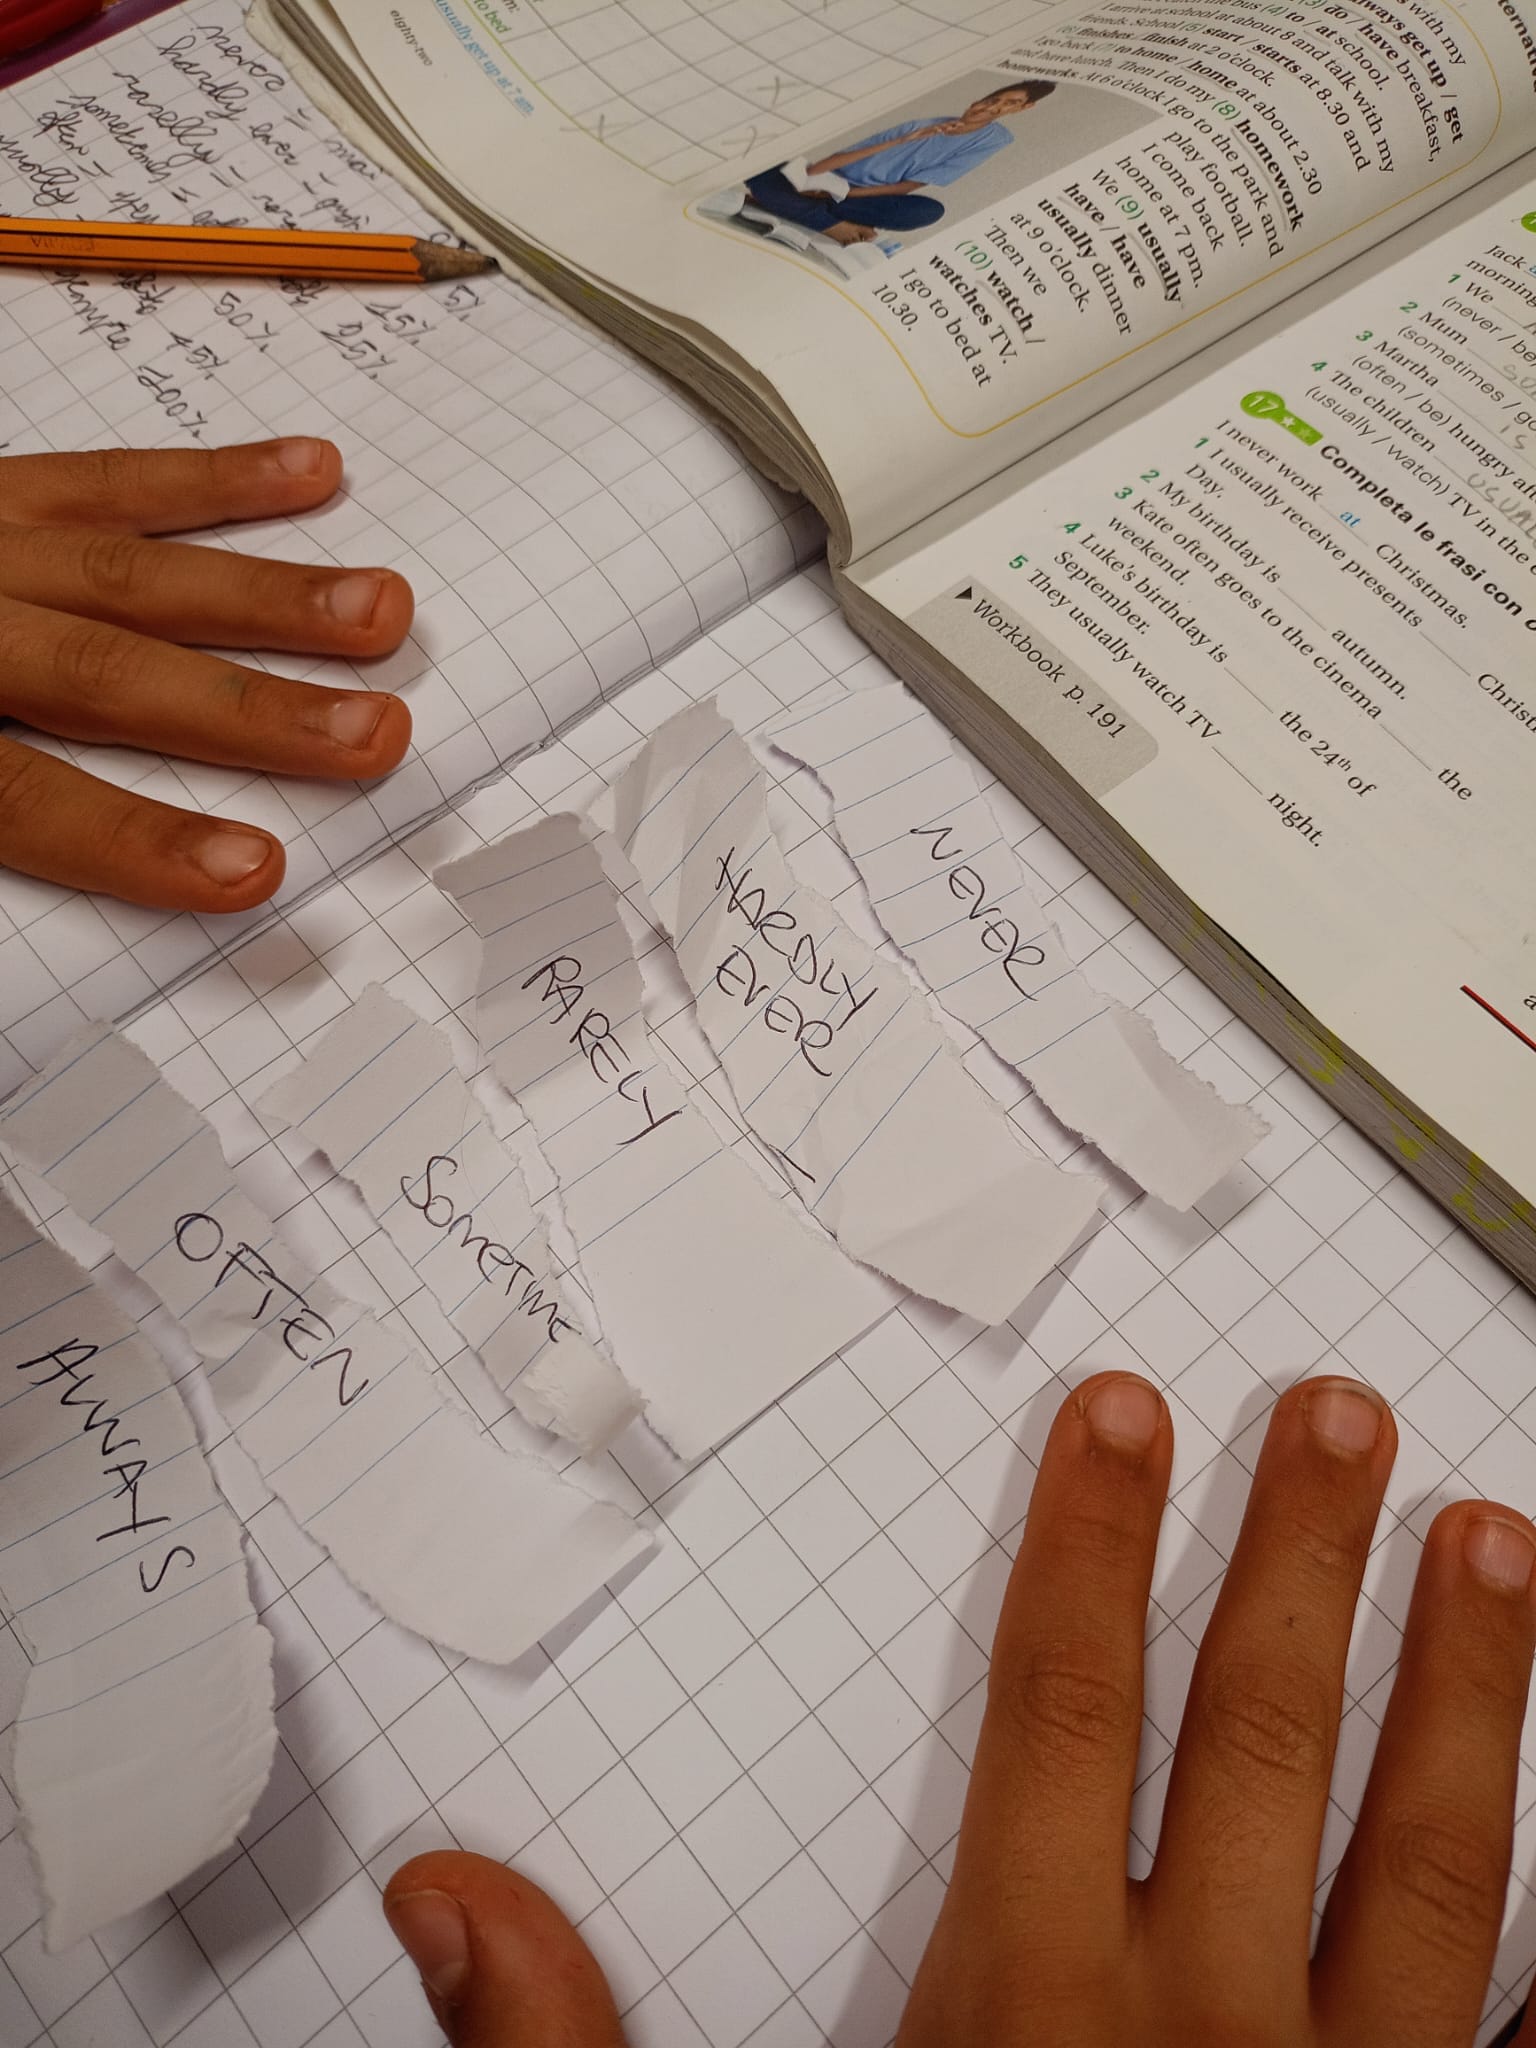 eighty-two
usually get up at 7 am.
to bed
always get up / get
do / have breakfast,
the bus (4) to / at school.
I arrive at school at about 8 and talk with my
friends. School (5) start / starts at 8.30 and
(6) finishes / finish at 2 o'clock.
I go back (7) to home / home at about 2.30
and have lunch. Then I do my (8) homework
homeworks. At 6 o'clock I go to the park and
play football.
I come back
home at 7 pm.
We (9) usually
have / have
usually dinner
at 9 o'clock.
Then we
(10) watch /
watches TV.
I go to bed at
10.30.
Jack
morning
1 We
(never / be)
2 Mum
(sometimes / go
3 Martha is
(often / be) hungry
4 The children
(usually / watch) TV in the
17 Completa le frasi con
I never work at Christmas.
1 I usually receive presents
Day.
2 My birthday is autumn.
3 Kate often goes to the cinema the
weekend.
4 Luke's birthday is the 24th of
September.
5 They usually watch TV night.
Workbook p. 191
never =
hardly ever =
5%
15%
25%
50%
45%
100%
NEVER
HARDLY
EVER
RARELY
SOMETIME
OFTEN
ALWAYS